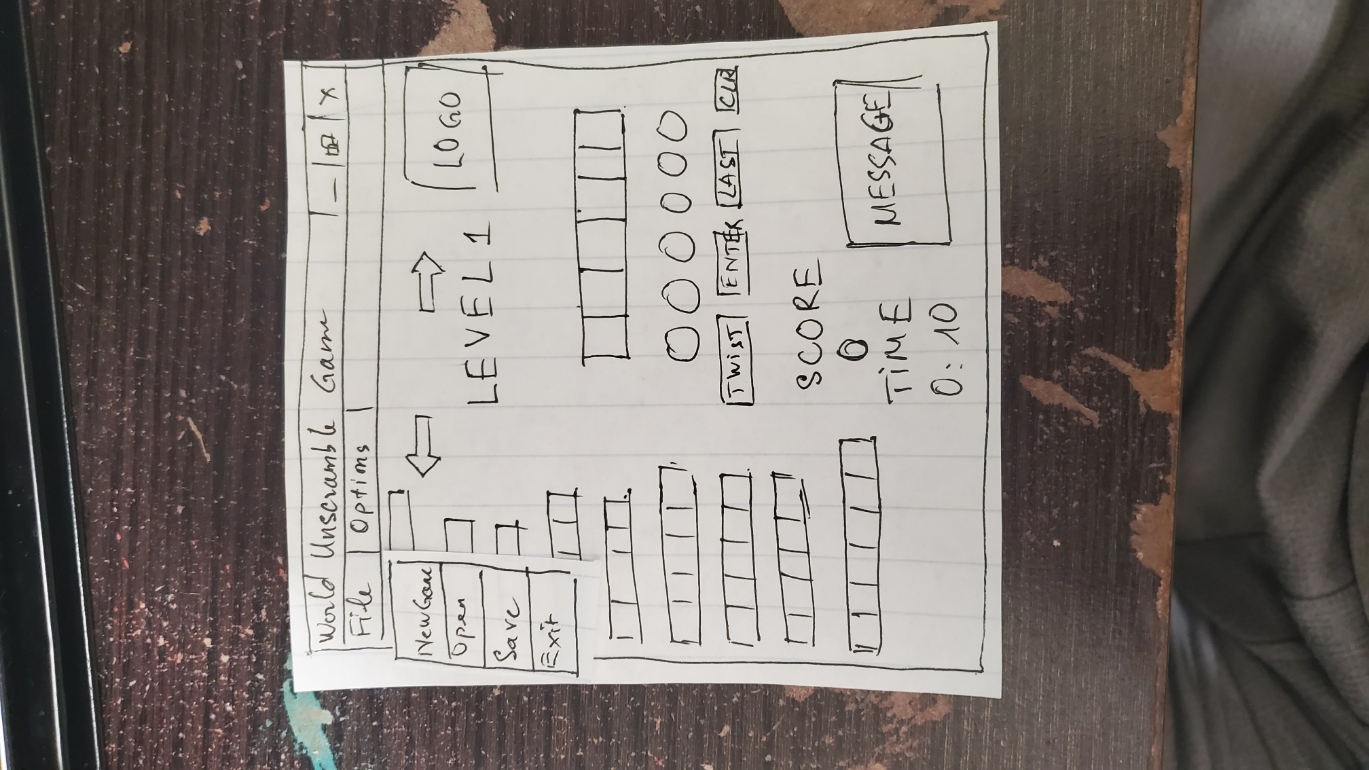 World Unscramble Game _ X
File Options
New Game
Open
Save
Exit
LOGO
LEVEL 1
TWIST ENTER LAST CLR
SCORE
0
TIME
0:10
MESSAGE